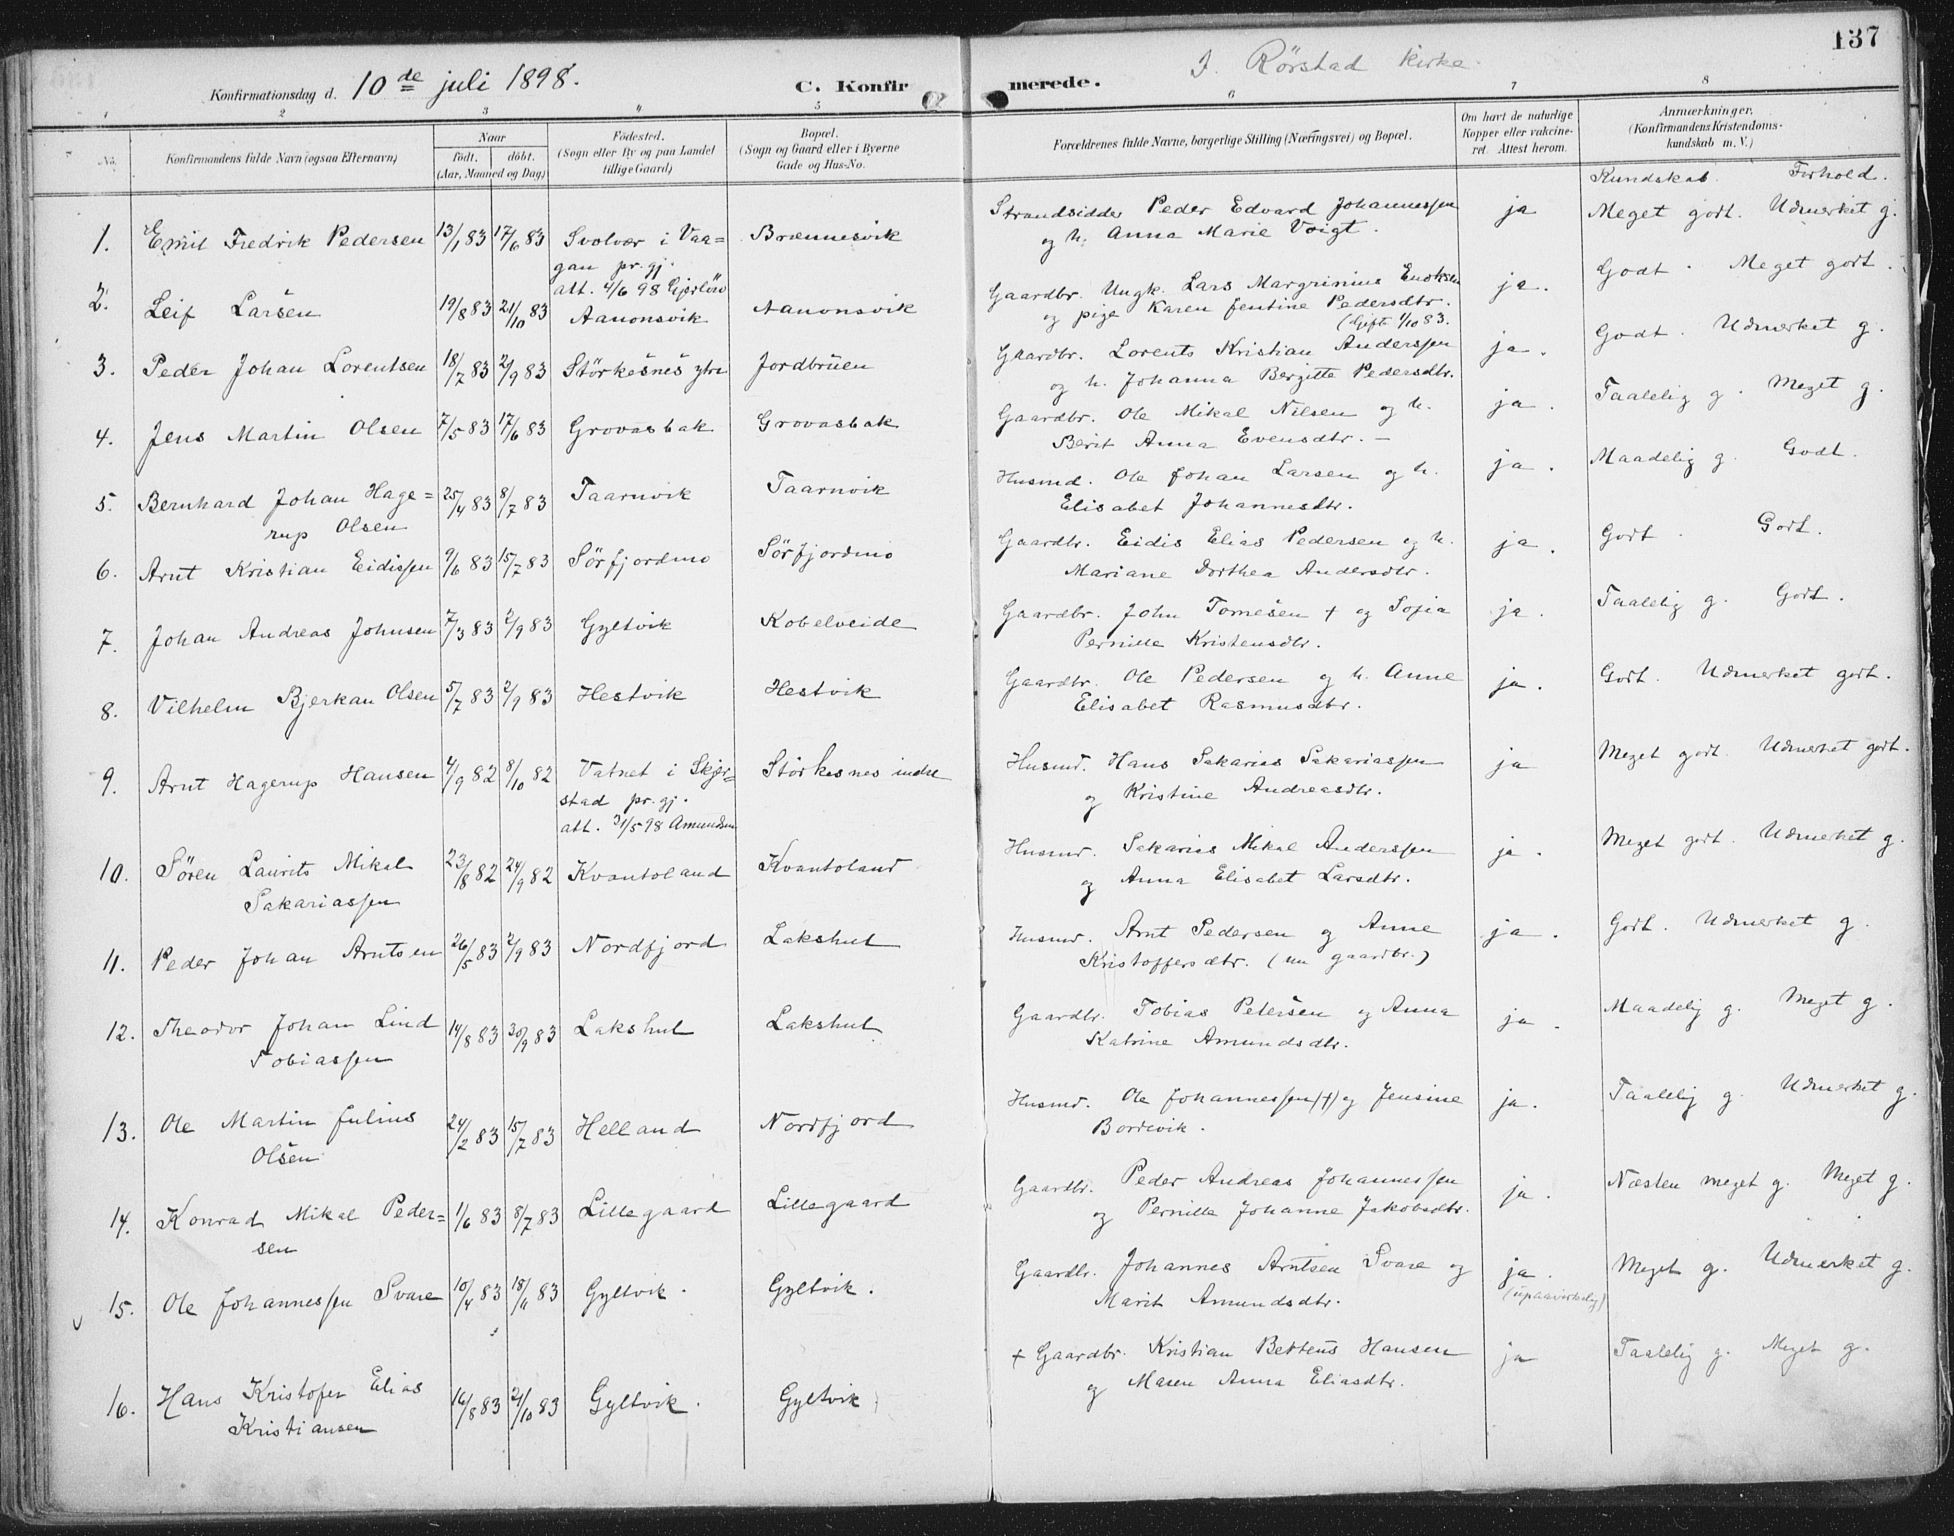 137
Konfirmationsdag d. 10de juli 1898. C. Konfirmerede. I Rörstad kirke.
1 2 3 4 5 6 7 8
No. Konfirmandens fulde Navn (ogsaa Efternavn) Naar født. døbt. (Aar, Maaned og Dag) Fødested. (Sogn eller By og paa Landet tillige Gaard) Bopæl. (Sogn og Gaard eller i Byerne Gade og Hus-No. Forældrenes fulde Navne, borgerlige Stilling (Næringsvei) og Bopæl. Om havt de naturlige Kopper eller vakcineret. Attest herom. Anmærkninger. (Konfirmandens Kristendomskundskab m. V.)
Kundskab. Forhold.
1. Emil Fredrik Pedersen 13/1 83 17/6 83 Svolvær i Vaa= Brænnesvik Strandsidder Peder Edvard Johannessen ja Meget godt. Udmerket g.
gan pr. gj. og h. Anna Marie Voigt.
att. 4/6 98
2. Leif Larsen 19/8 83 21/10 83 Aanonsvik Aanonsvik Gaardbr. Ungk. Lars Margrinius Enoksen ja. Godt. Meget godt.
og pige Karen Jentine Pedersdtr.
(Gift 1/10 83.
3. Peder Johan Lorentsen 18/7 83 2/9 83 Störkesnes ytre Jordbruen Gaardbr. Lorents Kristian Anderssen ja. Godt. Udmerket g.
og h. Johanna Bergitte Pedersdtr.
4. Jens Martin Olsen 7/5 83 17/6 83 Grovasbak Grovasbak Gaardbr. Ole Mikal Nilsen og h. ja. Taalelig g. Meget g.
Berit Anna Evensdtr. —
5. Bernhard Johan Hage= 25/4 83 8/7 83 Taarnvik Taarnvik Husmd. Ole Johan Larsen og h. ja. Maadelig g. Godt.
rup Olsen Elisabet Johannesdtr.
6. Arnt Kristian Eidissen 9/6 83 15/7 83 Sörfjordmo Sörfjordmo Gaardbr. Eidis Elias Pedersen og h. ja. Godt. Godt.
Mariane Dorthea Andersdtr.
7. Johan Andreas Johnsen 7/3 83 2/9 83 Gyltvik Kobelveide Gaardbr. John Tomesen + og Sofia ja. Taalelig g. Godt.
Pernille Kristensdtr.
8. Vilhelm Bjerkan Olsen 5/7 83 2/9 83 Hestvik Hestvik Gaardbr. Ole Pedersen og h. Anne ja. Godt. Udmerket godt.
Elisabet Rasmusdtr.
9. Arnt Hagerup Hansen 4/9 82 8/10 82 Vatnet i Skjer= Störkesnes indre Husmd. Hans Sakarias Sakariassen ja Meget godt. Udmerket godt.
stad pr. gj. og Kristine Andreasdtr.
att. 31/5 98 Amundsen
10. Sören Laurits Mikal 23/8 82 24/9 82 Kvantoland Kvantoland Husmd. Sakarias Mikal Anderssen ja. Meget godt. Udmerket g.
Sakariassen og Anna Elisabet Larsdtr.
11. Peder Johan Arntsen 26/5 83 2/9 83 Nordfjord Lakshul Husmd. Arnt Pedersen og Anne ja. Godt. Udmerket g.
Kristoffersdtr. (nu gaardbr.)
12. Theodor Johan Lind 14/8 83 30/9 83 Lakshul Lakshul Gaardbr. Tobias Petersen og Anna ja. Maadelig g. Meget g.
Tobiassen Katrine Amundsdtr.
13. Ole Martin Julius 24/2 83 15/7 83 Helland Nordfjord Husmd. Ole Johannessen (+) og Jensine ja. Taalelig g. Udmerket g.
Olsen Bordevik.
14. Konrad Mikal Peder= 1/6 83 8/7 83 Lillegaard Lillegaard Gaardbr. Peder Andreas Johannessen ja. Næsten meget g. Meget g.
sen og Pernille Johanne Jakobsdtr.
15. Ole Johannessen Svare 10/4 83 18/11 83 Gyltvik. Gyltvik. Gaardbr. Johannes Arntsen Svare og ja. Meget g. Udmerket g.
v Marit Amundsdtr. (upaavirkelig)
16. Hans Kristofer Elias 16/8 83 21/10 83 Gyltvik. Gyltvik + Gaardbr. Kristian Bettens Hansen ja Taalelig g. Meget g.
Kristiansen og Maren Anna Eliasdtr.